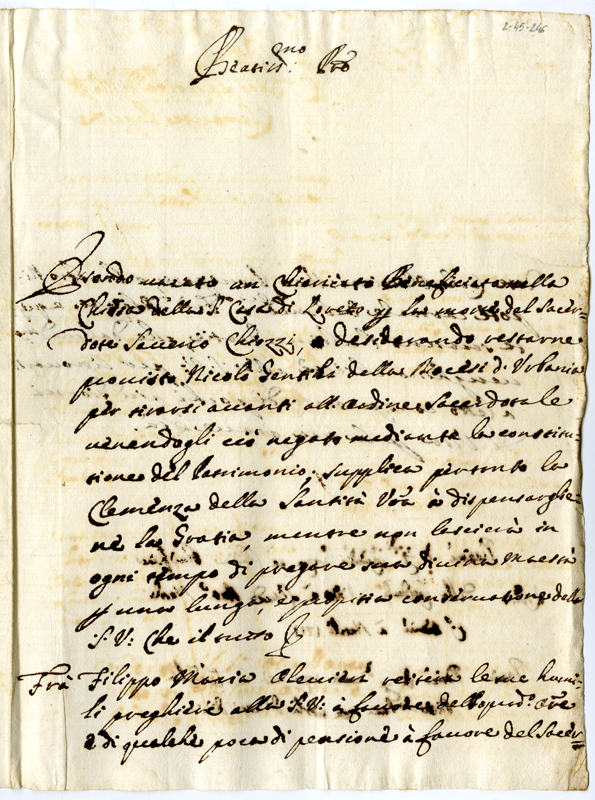 2-45-216
Beatis.mo P.re
Essendo vacato un Chiericato Beneficiato nella
Chiesa della S. Casa di Loreto p la morte del Sacer=
dote Saverio Chiozzi, e desiderando restarne
provisto Nicolò Gentili della Diocesi d'Urbania
per tirarsi avanti all'ordine Sacerdotale
venendogli ciò negato mediante la constitu=
tione del Patrimonio; supplica pertanto la
Clemenza della Santità Vra à dispensarglie=
ne la Gratia, mentre non lascierà in
ogni tempo di pregare sua divina Maestà
p una lunga, e propitia conservatione della
S. V: Che il tutto
Frà Filippo Maria reitera le sue humi=
li preghiere alla S. V: à favore dell'
e di qualche poca di pensione à favore del Sacer=